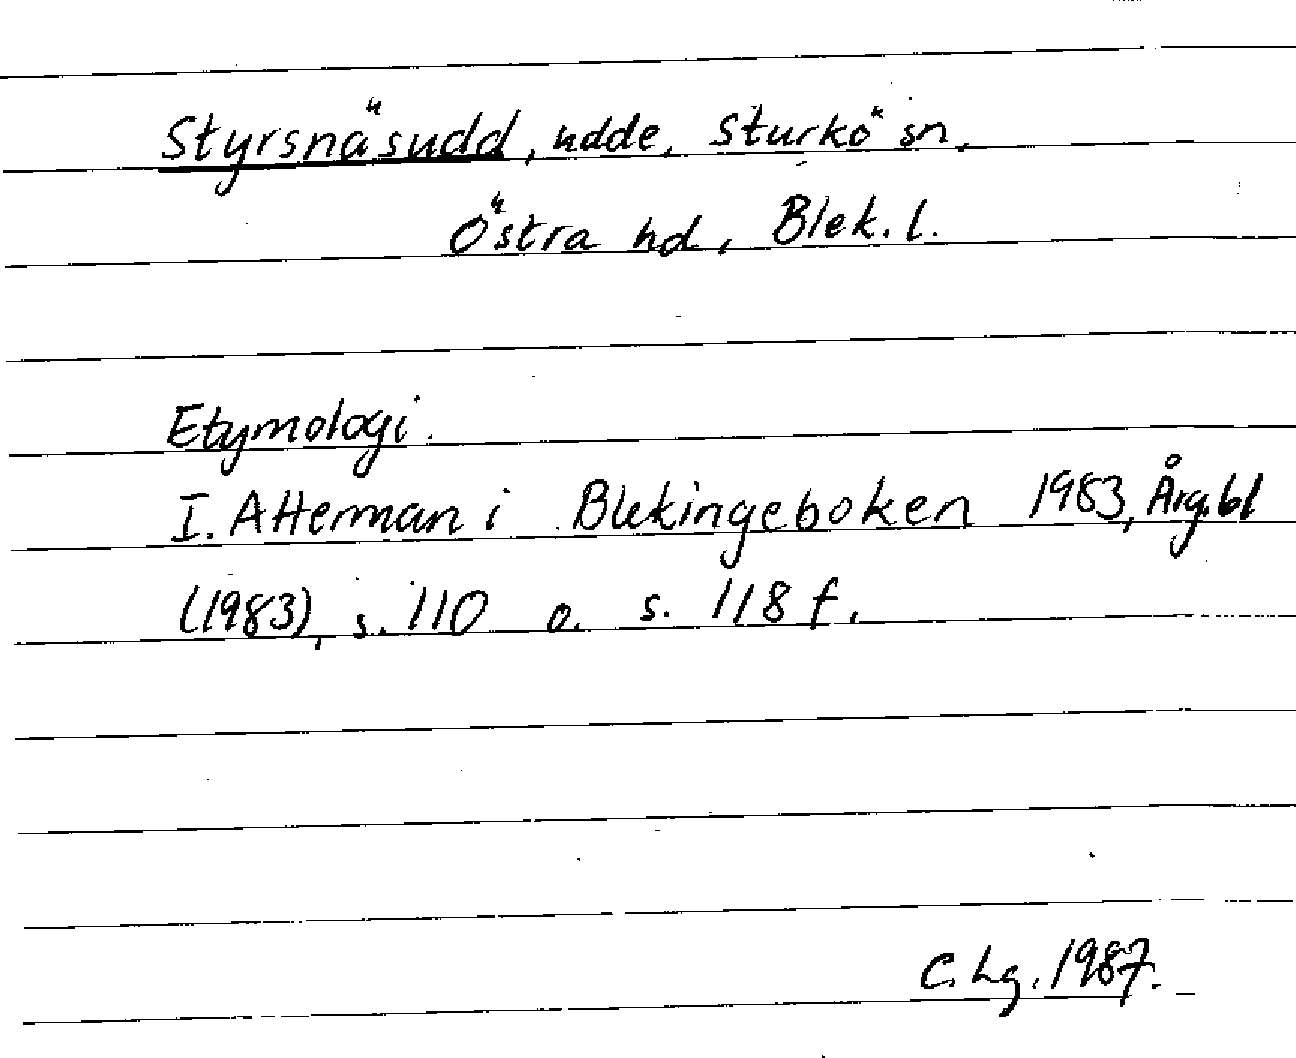 Styrsnäsudd, udde, Sturkö sn,
Östra hd, Blek. l.
Etymologi.
I. Atterman i Blekingeboken 1983, Årg. 61
(1983), s. 110 o. s. 118 f.
C. Lg. 1987.